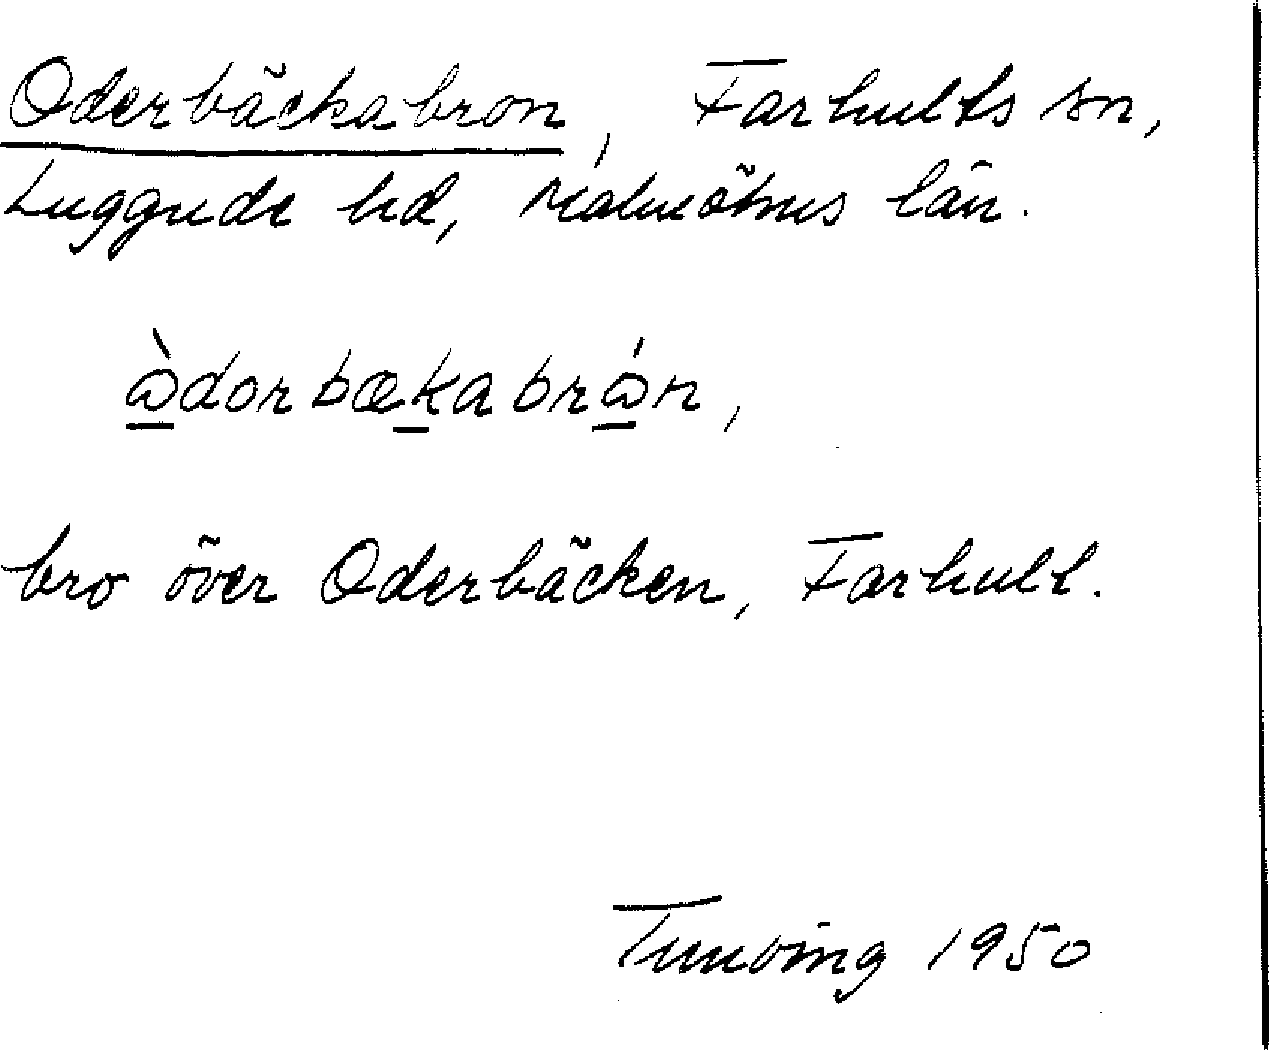 Oderbäckabron, Farhults sn,
Luggude hd, Malmöhus län.
ɷ̱̀dorbæḵabrɷ̱́n,
bro över Oderbäcken, Farhult.
Tunving 1950